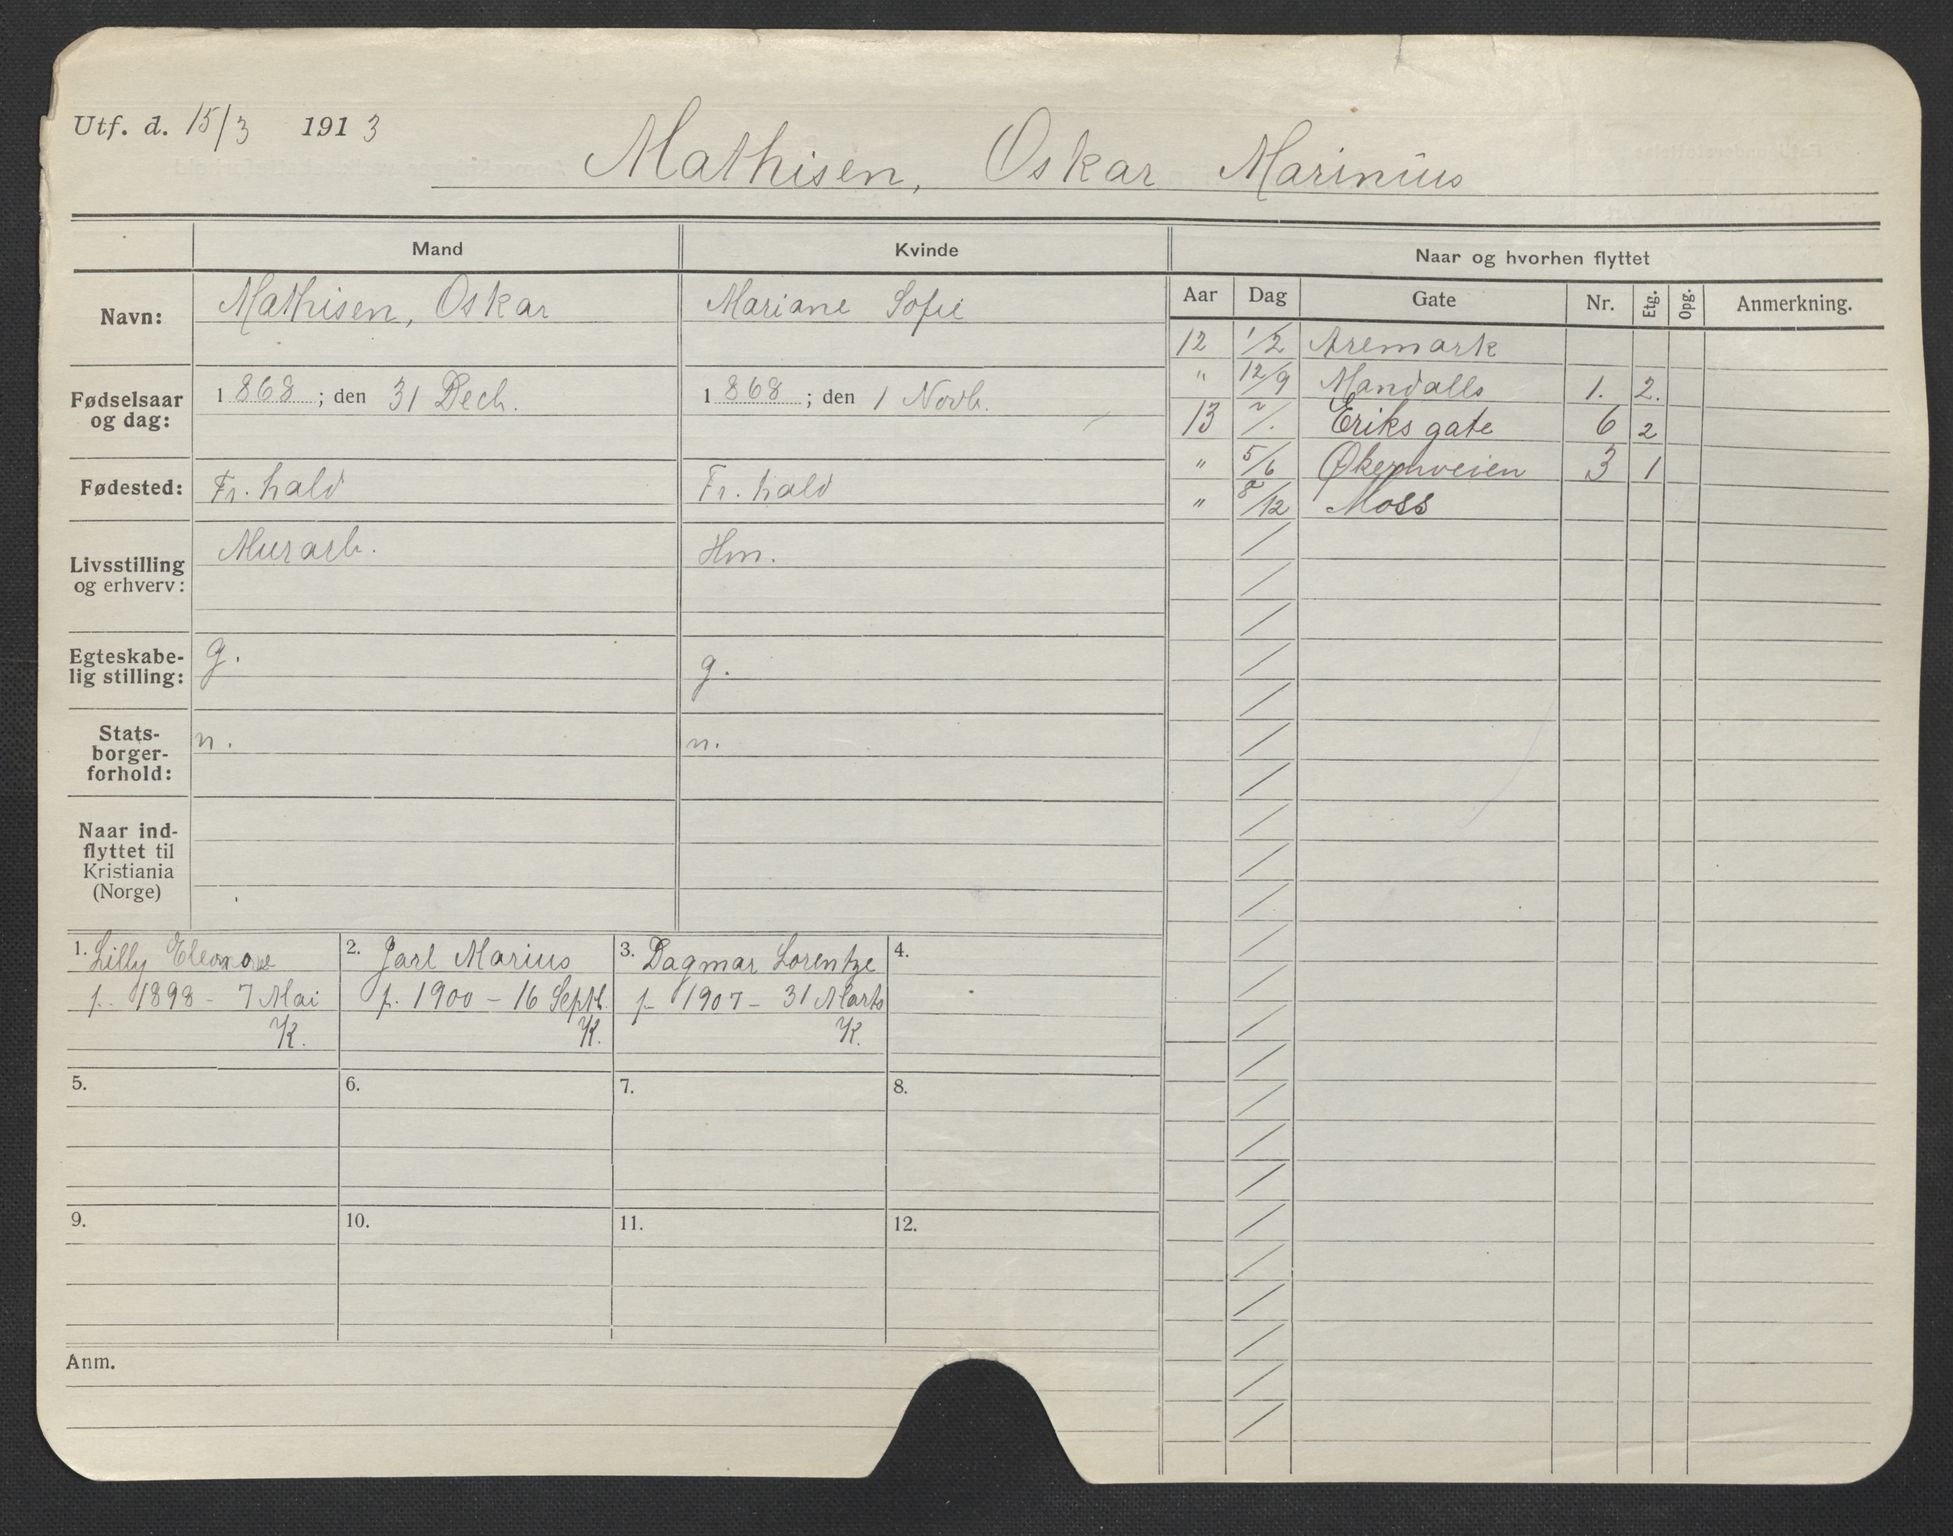 Utf. d. 15/3 1913
Mathisen, Oskar Marinius
Mand Kvinde Naar og hvorhen flyttet
Aar Dag Gate Nr. Etg. Opg. Anmerkning.
Navn: Mathisen, Oskar Mariane Sofie
Fødselsaar og dag: 1868; den 31 Dech. 1868; den 1 Novb.
Fødested: Fr.hald Fr.hald
Livsstilling og erhverv: Murarb. Hm.
Egteskabe-
lig stilling: g. g.
Stats-
borger-
forhold: n. n.
Naar ind-
flyttet til
Kristiania
(Norge)
12 1/2 Aremark
" 12/9 Mandalls 1. 2.
13 Eriks gate 6 2
" 5/6 Økernveien 3 1
" 8/12 Moss
1. Lilly Eleonore
f. 1898 - 7 Mai
K.
2. Jarl Marius
f. 1900 - 16 Septb.
K.
3. Dagmar Lorentze
f. 1907 - 31 Marts
K.
4.
5.
6.
7.
8.
9.
10.
11.
12.
Anm.